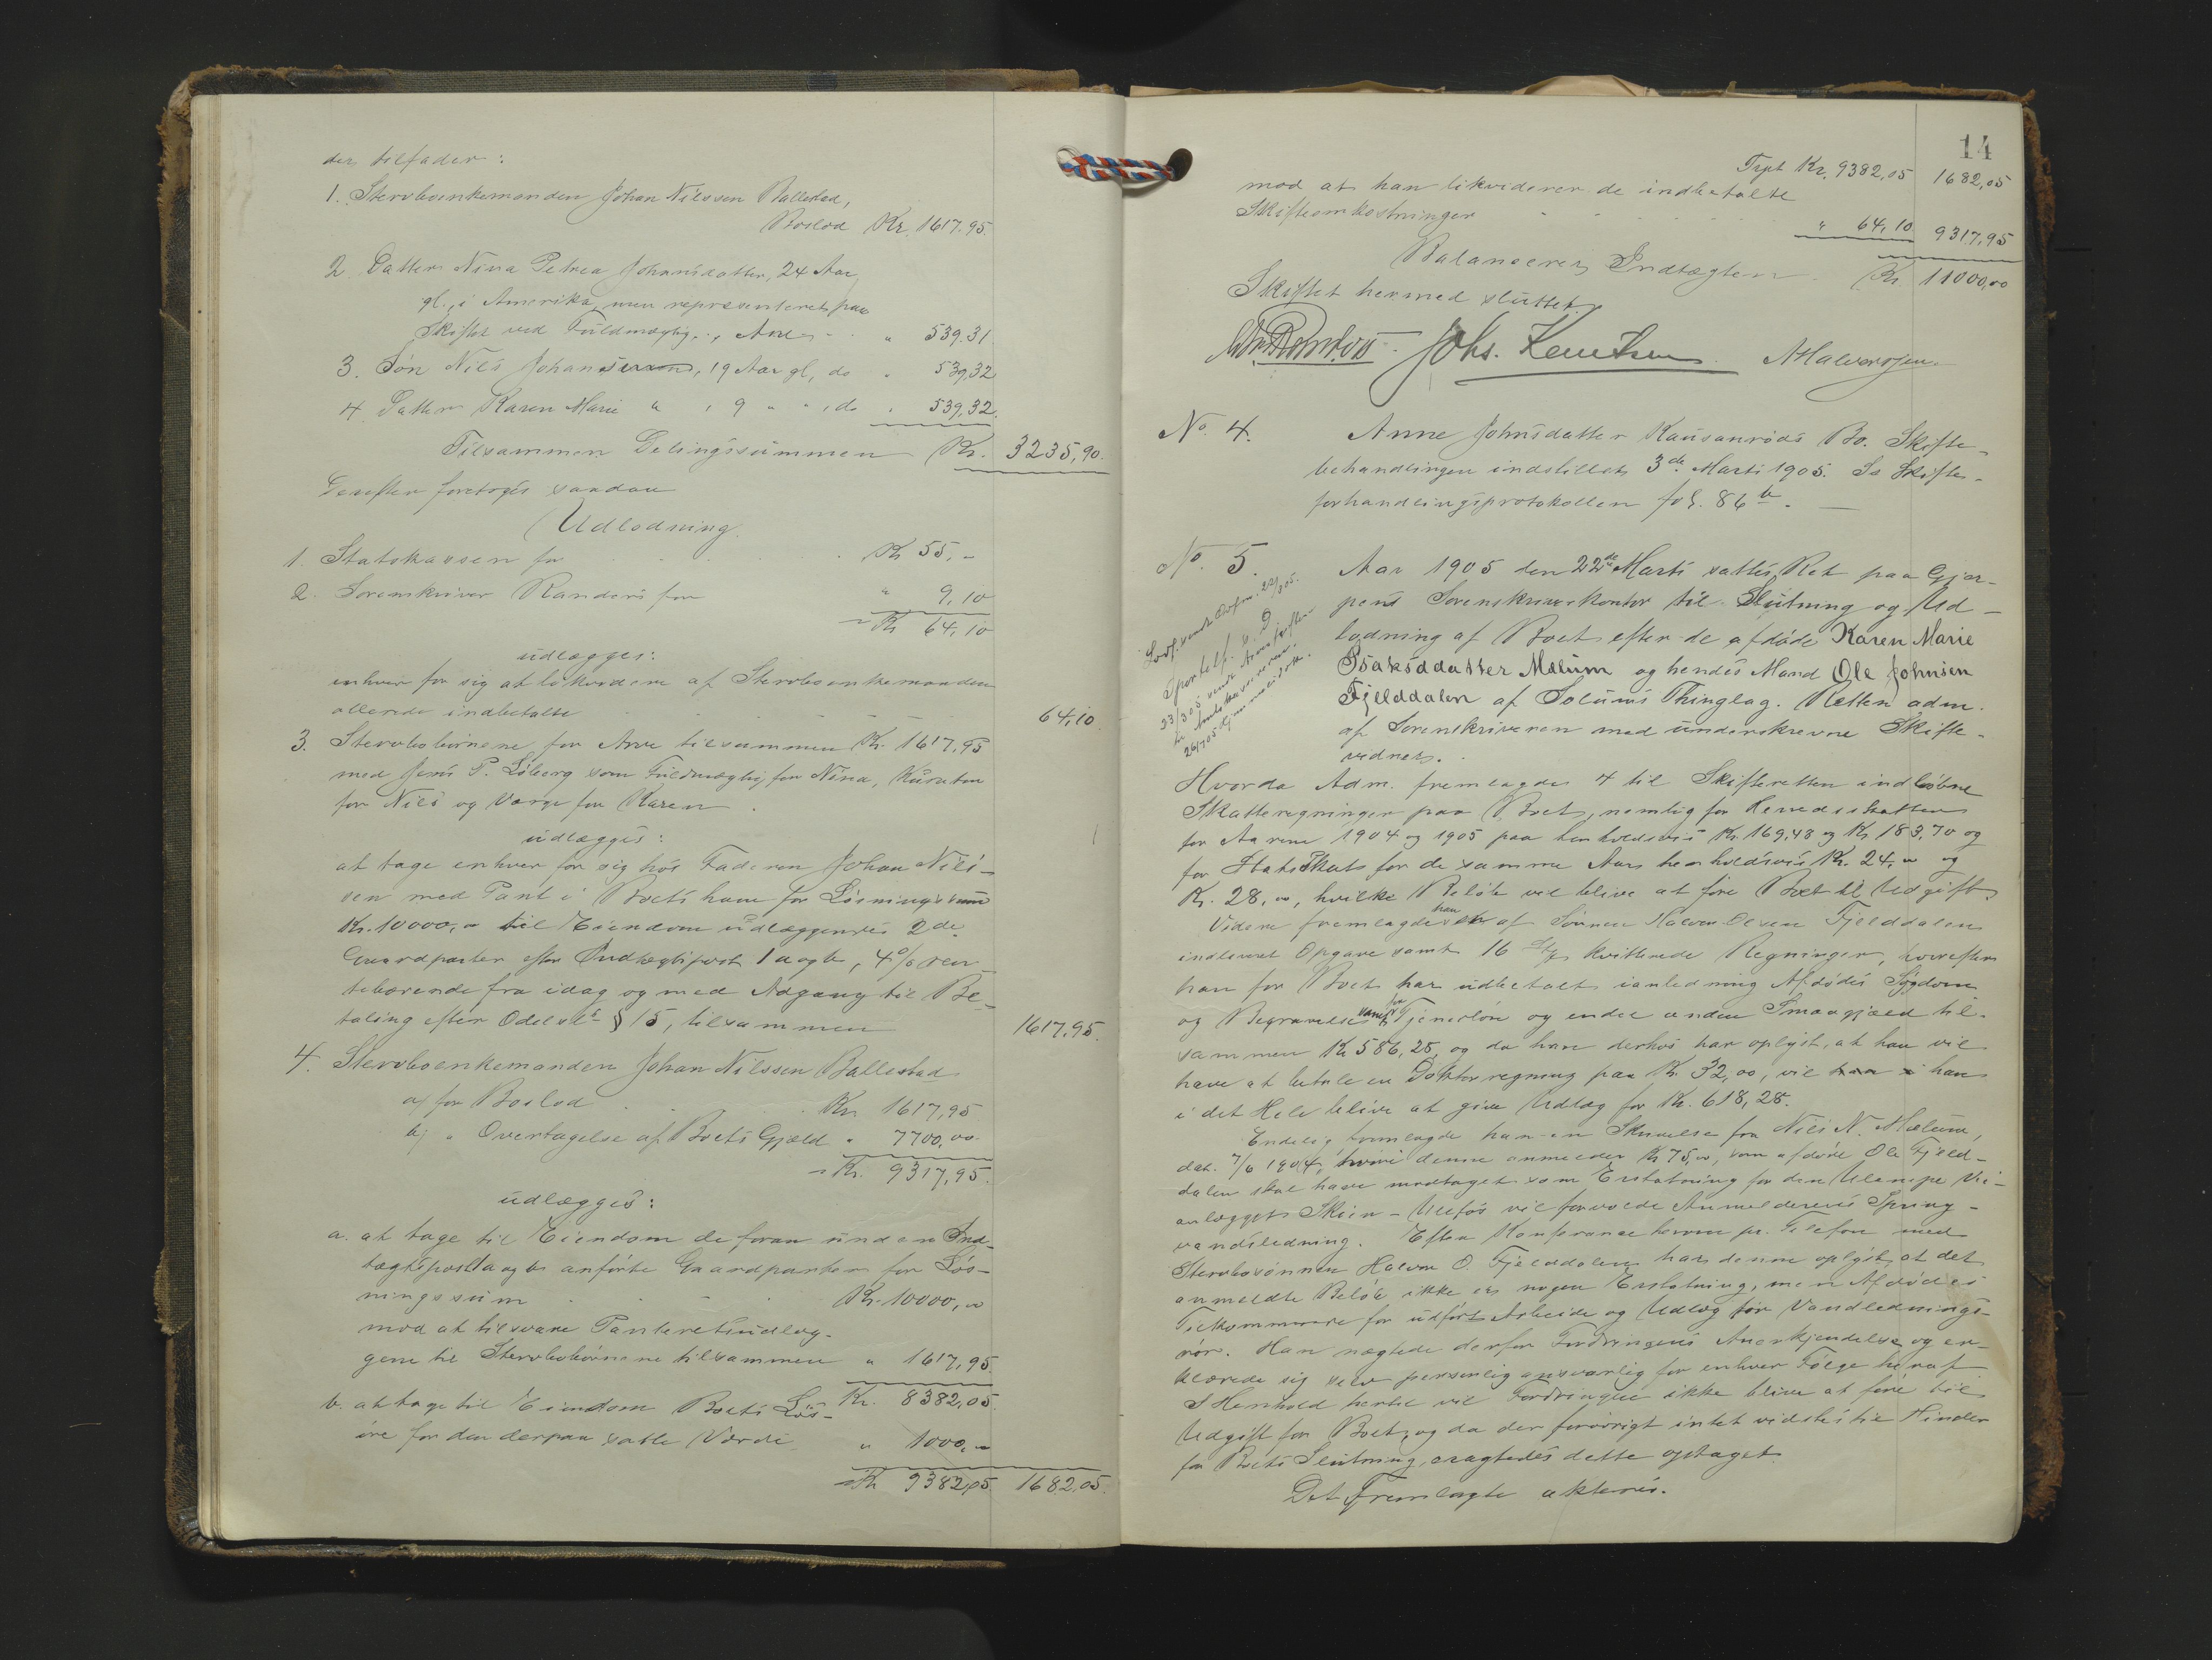 der tilfader:
1. Stervboenkemanden Johan Nilssen Ballestad,
Boslod Kr. 1617.95.
2. Datter Nina Petrea Johansdatter, 24 Aar
gl., i Amerika, men repræsenteret paa
Skiftet ved Fuldmægtig, Arv " 539.31
3. Søn Nils Johanssen, 19 Aar gl, do " 539,32
4. Datter Karen Marie " , 9 " " , do " 539,32.
Tilsammen Delingssummen Kr. 3235,90.
Derefter foretoges saadan
Udlodning.
1. Statskassen for Kr 55, "
2. Sorenskriver Randers for " 9,10
= Kr 64,10
udlægges:
enhver for sig at likvidere af Stervboenkemanden
allerede indbetalte 64,10.
3. Stervbobørnene for Arv tilsammen Kr. 1617,95
med Jens P. Løberg som Fuldmægtig for Nina, Kurator
for Nils og Værge for Karen.
udlægges:
at tage enhver for sig hos Faderen Johan Nils-
sen med Pant i Boets ham for Løsningssum
Kr. 10000, " til Eiendom udlæggendes 2de
Gaardparter efter Indtægtspost 1 a og b, 4 % ren-
tebærende fra idag og med Adgang til Be-
taling efter Odelsl. § 15, tilsammen 1617.95.
4. Stervboenkemanden Johan Nilssen Ballestad
a) for Boslod Kr. 1617,95
b) " Overtagelse af Boets Gjæld " 7700,00
= Kr. 9317,95.
udlægges:
a. at tage til Eiendom de foran under Ind-
tægtspost 1a og b anførte Gaardparter for Løs-
ningssum Kr. 10000, "
mod at tilsvare Panteretsudlæg-
gene til Stervbobørnene tilsammen " 1617,95
Kr. 8382,05.
b. at tage til Eiendom Boets Løs-
øre for den derpaa satte Værdi " 1000, "
= Kr 9382,05 1682,05.
14
Trpt Kr. 9382,05 1682,05
mod at han likviderer de indbetalte
Skifteomkostninger " 64,10 9317,95
Balancerer Indtægten Kr. 11000,00
Skiftet hermed sluttet.
Johs. Knutsen. AHalvorsen.
No. 4. Anne Johnsdatter Kausanrøds Bo. Skifte-
behandlingen indstillet 3de Marts 1905. Se Skifte-
forhandlingsprotokollen fol. 86 b. —
No. 5. Aar 1905 den 22de Marts sattes Ret paa Gjer-
pens Sorenskriverkontor til Slutning og Ud-
lodning af Boet efter de afdøde Karen Marie
Isaksdatter Mælum og hendes Mand Ole Johnsen
Fjelddalen af Solums Thinglag. Retten adm.
af Sorenskriveren med underskrevne Skifte-
vidner.
Hvorda Adm. fremlagde 4 til Skifteretten indløbne
Skatteregninger paa Boet, nemlig for Herredsskatten
for Aarene 1904 og 1905 paa henholdsvis Kr. 169,48 og Kr. 183,70 og
for Statsskat for de samme Aar henholdsvis Kr. 24, " og
Kr. 28,00, hvilke Beløb vil blive at føre Boet til Udgift.
Videre fremlagde han af Sønnen Halvor Olsen Fjelddalen
indleveret Opgave samt 16 Stk kvitterede Regninger, hvorefter
han for Boet har udbetalt ianledning Afdødes Sygdom
og Begravelse samt for Tjenerløn og endel anden Smaagjæld til-
sammen Kr 586,28, og da han derhos har oplyst, at han vil
have at betale en Doktorregning paa Kr. 32,00, vil han
i det Hele blive at give Udlæg for Kr. 618,28.
Endelig fremlagde han en Skrivelse fra Nils N. Mælum,
dat. 7/6 1904, hvori denne anmelder Kr 75,00, som afdøde Ole Fjeld-
dalen skal have modtaget som Erstatning for den Ulempe Vei-
anlægget Skien - Ulefos vil forvolde Anmelderens Spring-
vandsledning. Efter Konference herom pr. Telefon med
Stervbosønnen Halvor O. Fjelddalen har denne oplyst, at det
anmeldte Beløb ikke er nogen Erstatning, men Afdødes
Tilkommende for udført Arbeide og Udlæg for Vandlednings-
rør. Han nægtede derfor Fordringens Anerkjendelse og er-
klærede sig selv personlig ansvarlig for enhver Følge heraf.
I Henhold hertil vil Fordringen ikke blive at føre til
Udgift for Boet, og da der forøvrigt intet vidstes til Hinder
for Boets Slutning, eragtedes dette optaget.
Det fremlagte akteres.